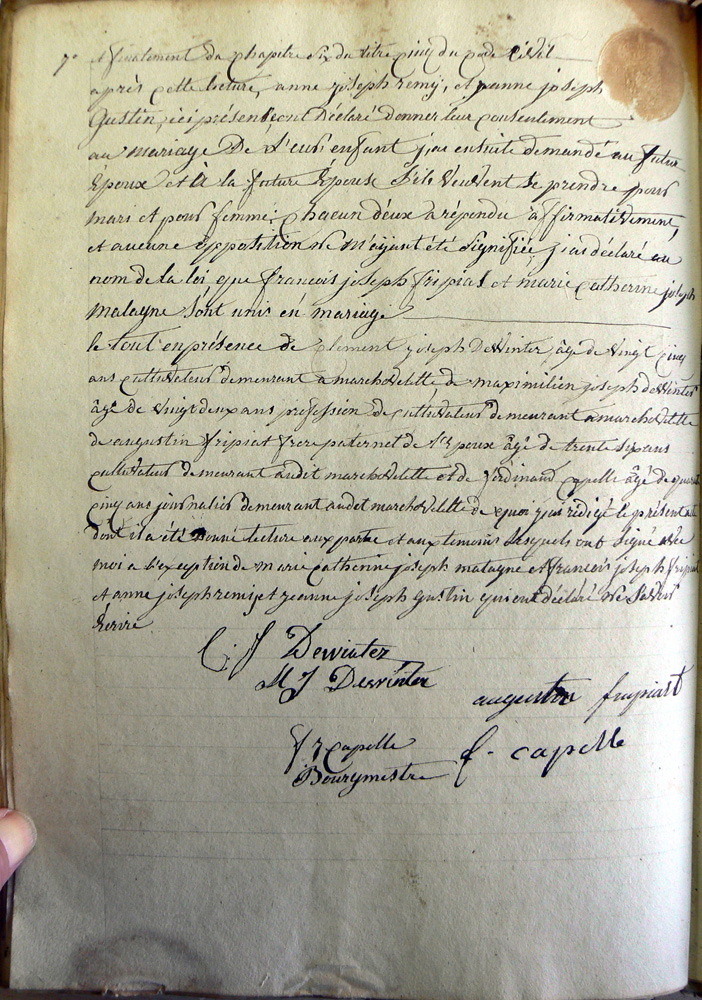 7° également du chapitre six du titre cinq du Code Civil
après cette lecture, anne joseph remy, et jeanne joseph
Gustin, ici présent, ont déclaré donner leur consentement
au mariage De L'eur enfant j'ai ensuite demandé au futur
Epoux et à la future Epouse S'ils Veuvent se prendre pour
mari et pour femme; Chacun d'eux a répondu affirmativement,
et aucune opposition ne m'ayant été signifiée j'ai déclaré au
nom de la loi que françois joseph fripiat et marie catherine joseph
malagne sont unis en mariage
le tout en présence de clement joseph deWinter, âgé de Vingt cinq
ans cultivateur demeurant a marchovelette de maximilien joseph deWinter
âgé de vingt deux ans profession de cultivateur demeurant a marchovelette
de augustin fripiat frere paternel de l'epoux âgé de trente six ans
cultivateur demeurant audit marchovelette et de ferdinand Capelle âgé de quarante
cinq ans journalier demeurant audit marchovelette de quoi j'ai rédigé le présent acte
dont il a été donné lecture aux partie et aux temoins Lesquels ont signé avec
moi a l'exception de marie catherine joseph malagne et françois joseph fripiat
et anne joseph remi, et jeanne joseph gustin qui ont déclaré ne Savoir
Ecrire
C. J Dewinter
M J Dewinter
augustin fripiart
Capelle f. capelle
Bourgmestre